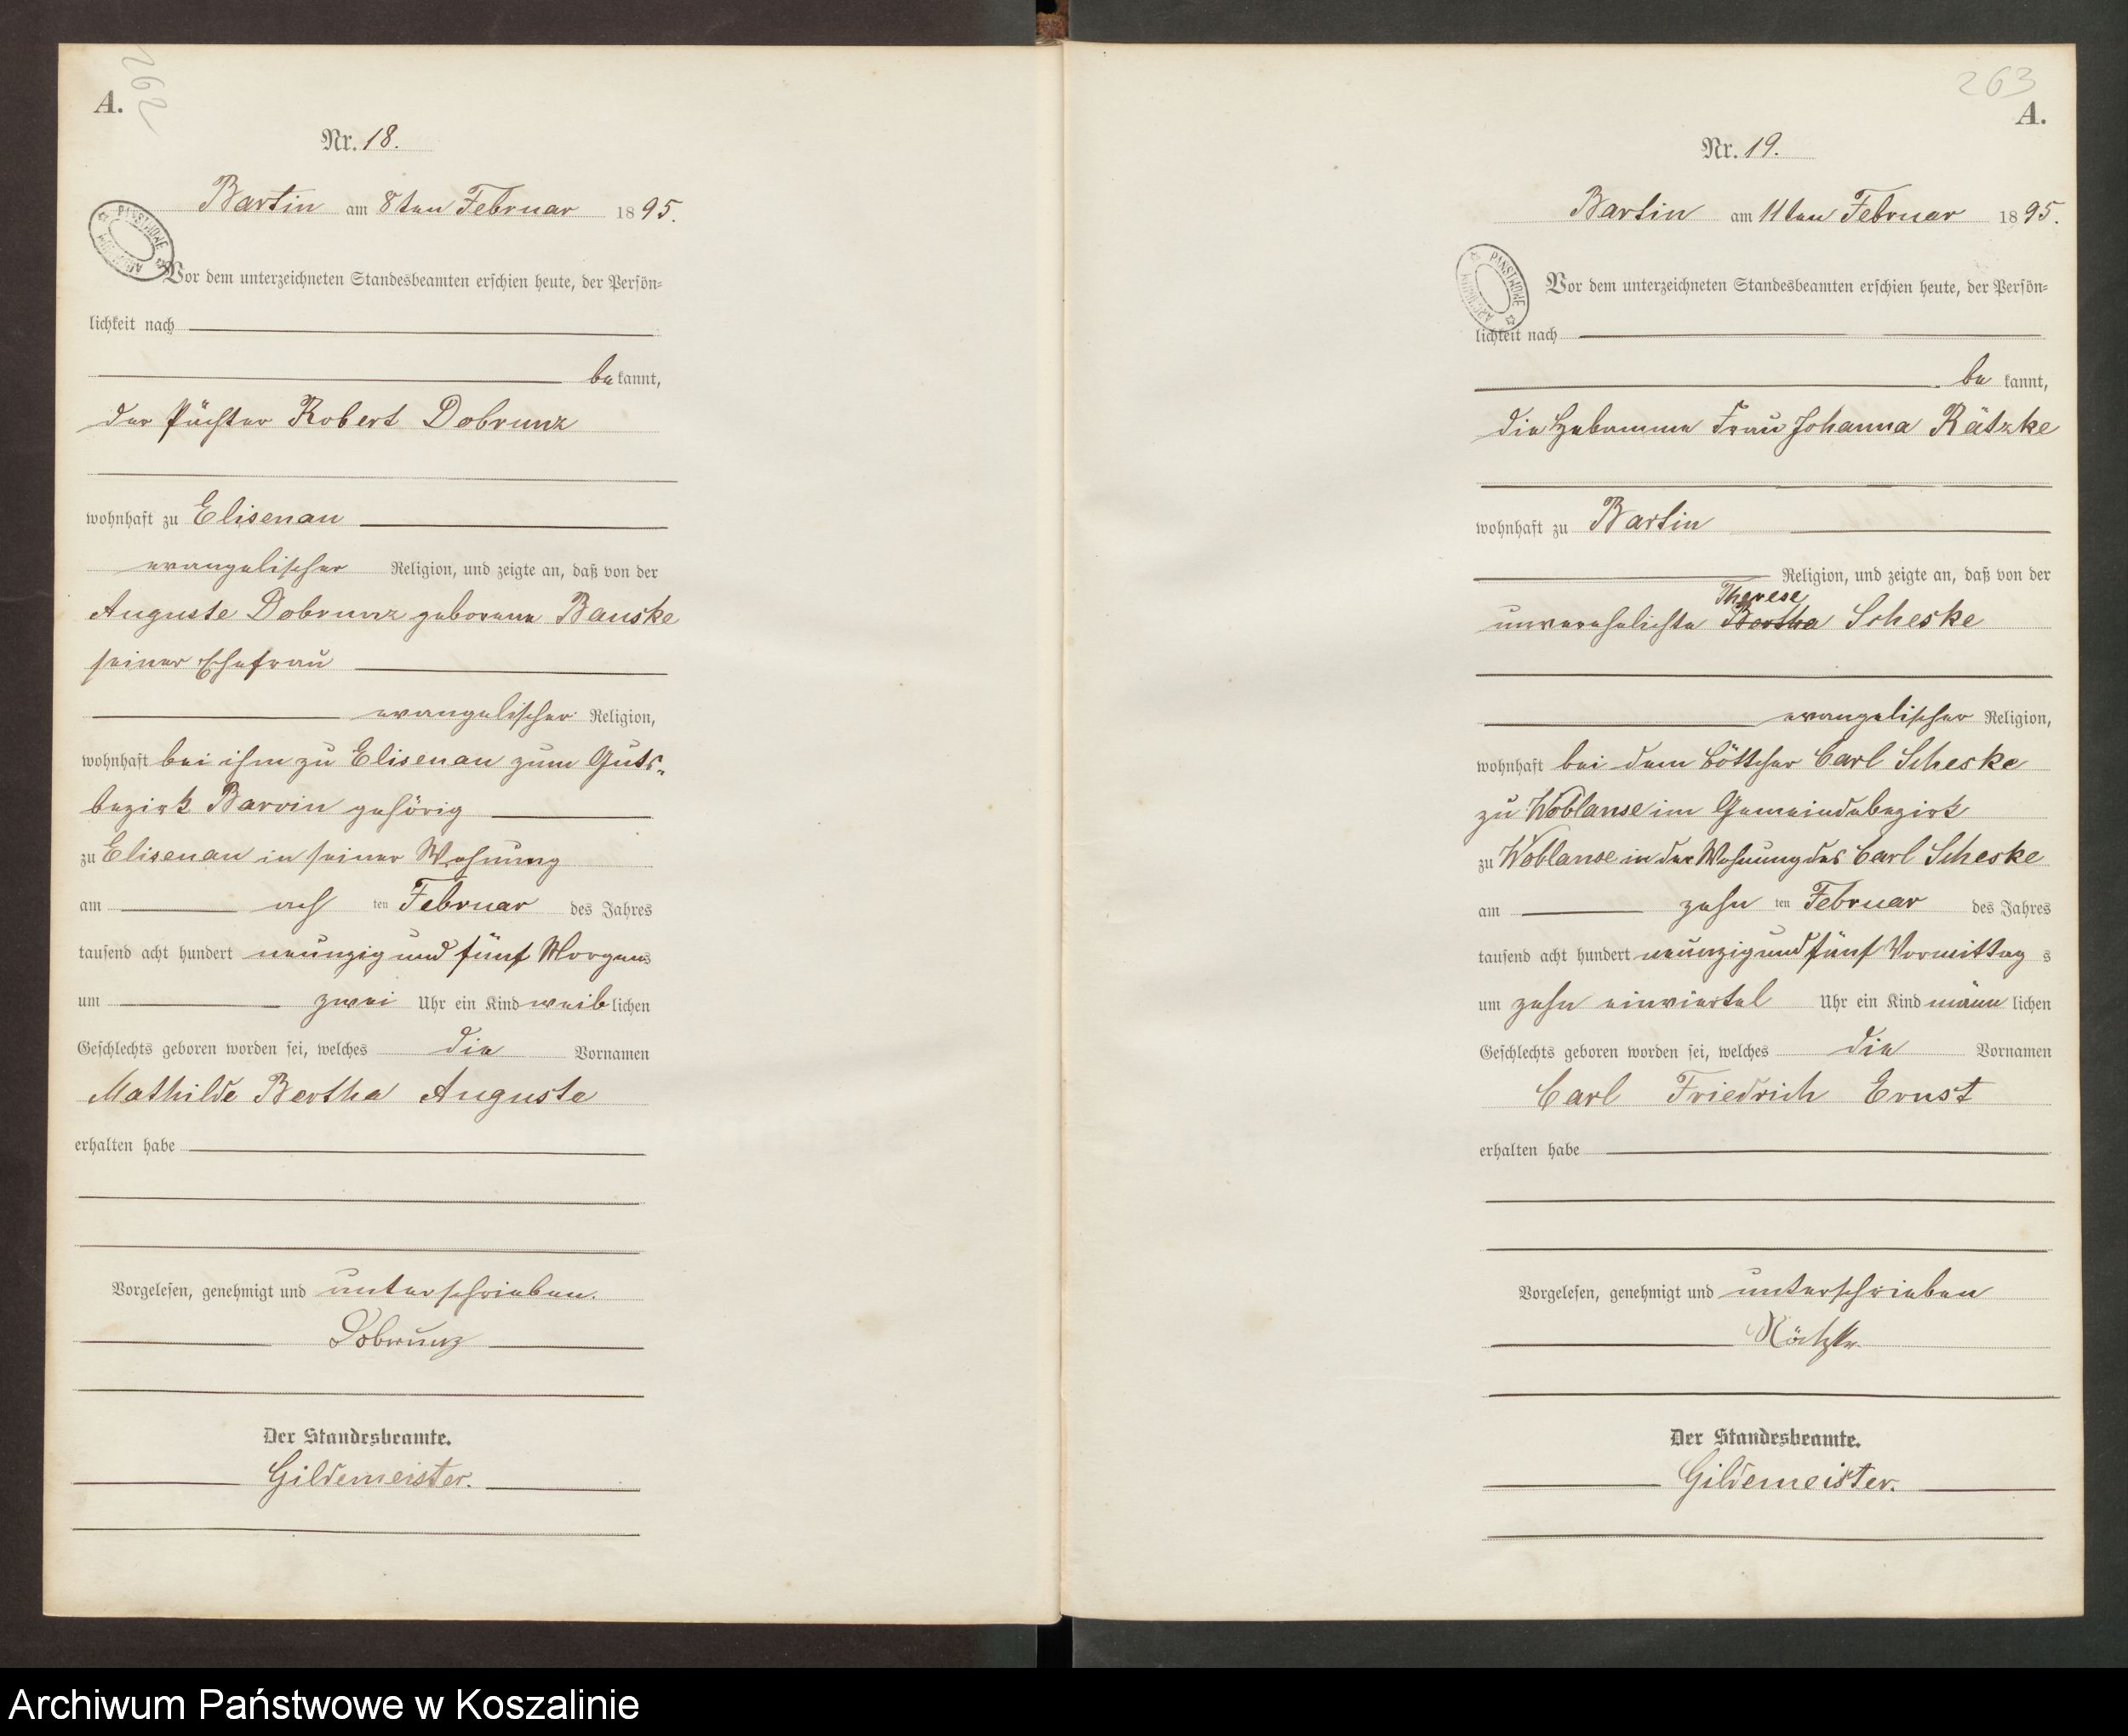 262
A.
Nr. 18.
Bartin am 8ten Februar 1895.
PAŃSTWOWE ARCHIWUM
Vor dem unterzeichneten Standesbeamten erschien heute, der Persön-
lichkeit nach
bekannt,
der Pächter Robert Dobrunz
wohnhaft zu Elisenau
evangelischer Religion, und zeigte an, daß von der
Auguste Dobrunz geborene Bauske
seiner Ehefrau
evangelischer Religion,
wohnhaft bei ihm zu Elisenau zum Guts-
bezirk Barvin gehörig
zu Elisenau in seiner Wohnung
am acht ten Februar des Jahres
tausend acht hundert neunzig und fünf Morgens
um zwei Uhr ein Kind weiblichen
Geschlechts geboren worden sei, welches die Vornamen
Mathilde Bertha Auguste
erhalten habe
Vorgelesen, genehmigt und unterschrieben.
Dobrunz
Der Standesbeamte.
Gildemeister.
263
A.
Nr. 19.
Bartin am 11ten Februar 1895.
PAŃSTWOWE ARCHIWUM
Vor dem unterzeichneten Standesbeamten erschien heute, der Persön-
lichkeit nach
be kannt,
die Hebamme Frau Johanna Rätzke
wohnhaft zu Bartin
Religion, und zeigte an, daß von der
Therese
unverehelichte Bertha Scheske
evangelischer Religion,
wohnhaft bei dem Böttcher Carl Scheske
zu Woblanse im Gemeindebezirk
zu Woblanse in der Wohnung des Carl Scheske
am zehn ten Februar des Jahres
tausend acht hundert neunzig und fünf Vormittag s
um zehn einviertel Uhr ein Kind männ lichen
Geschlechts geboren worden sei, welches die Vornamen
Carl Friedrich Ernst
erhalten habe
Vorgelesen, genehmigt und unterschrieben
Rätzke
Der Standesbeamte.
Gildemeister.
Archiwum Państwowe w Koszalinie